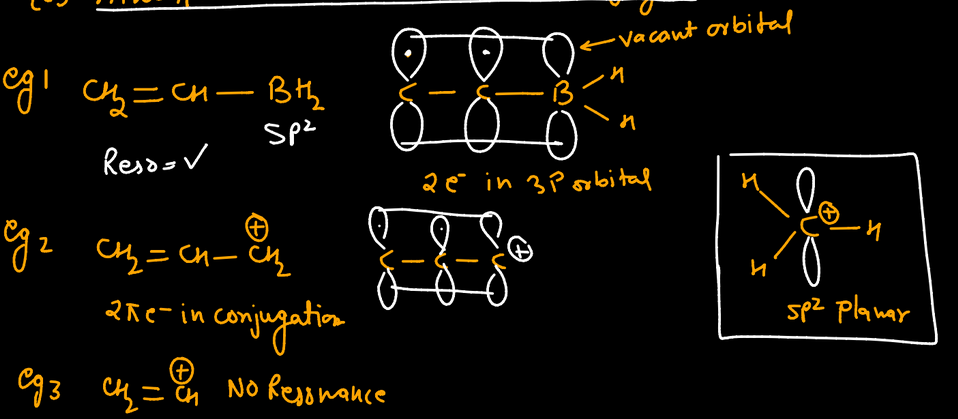 eg1 CH₂=CH—BH₂
SP²
Reso=✓
C—C—B
H
H
← vacant orbital
2e⁻ in 3P orbital
eg2 CH₂=CH—CH₂
⊕
2πe⁻ in conjugation
C—C—C ⊕
H
C ⊕ —H
H
SP² Planar
eg3 CH₂=CH NO Resonance
⊕